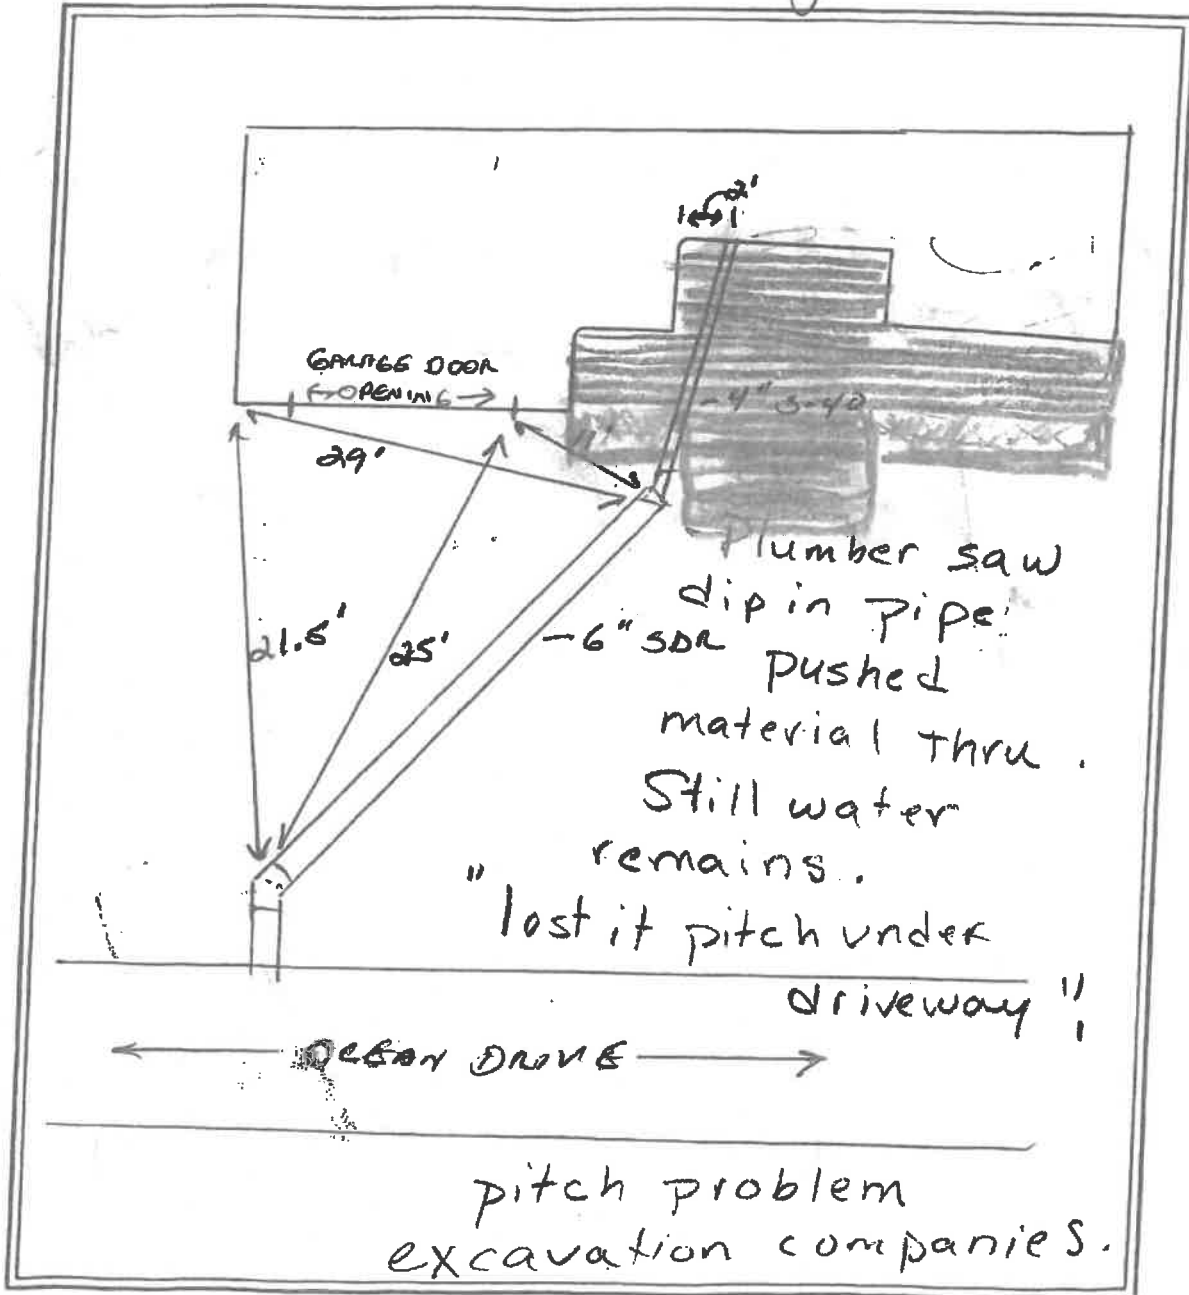 2'
GARAGE DOOR
OPENING
4" S-40
29'
21.5'
25'
6" SDR
Plumber saw
dip in pipe.
Pushed
material thru.
Still water
remains.
"lost it pitch under
driveway"!
OCEAN DROVE
pitch problem
excavation companies.